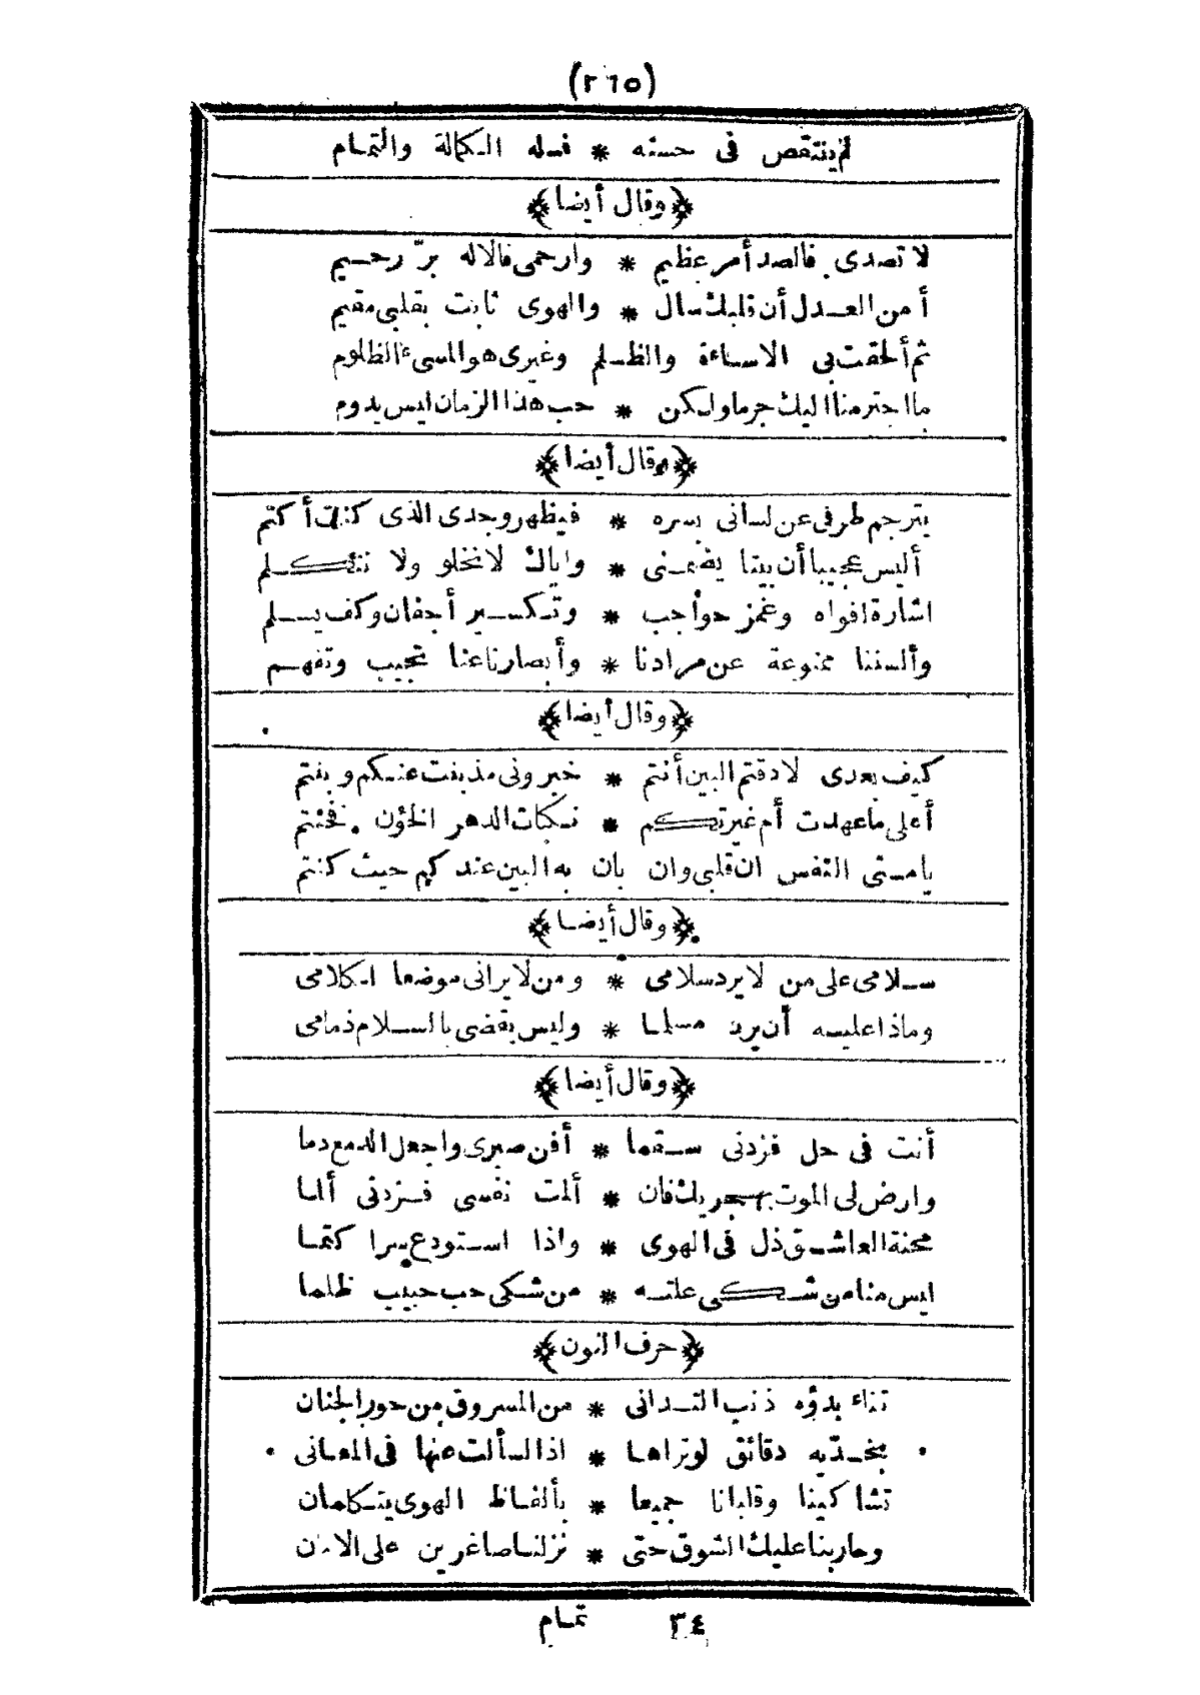 (٢٦٥)
لم ينتقص فى حسنه * فله الكمالة والتمام
﴿وقال أيضا﴾
لا تصدى فالصد أمر عظيم * وارحمى فالاله برّ رحيم
أمن العدل أن قلبك سال * والهوى ثابت بقلبى مقيم
ثم ألحقت بى الاساءة والظلم وغيرى هو المسىء الظلوم
ما اجترمنا اليك جرما ولكن * حب هذا الزمان ليس يدوم
﴿وقال أيضا﴾
يترجم طرفى عن لسانى بسره * فيظهر وجدى الذى كنت أكتم
أليس عجيبا أن بيتا يضمنى * واياك لا نخلو ولا نتكلم
اشارة افواه وغمز حواجب * وتكسير أجفان وكف يسلم
وألسننا ممنوعة عن مرادنا * وأبصارنا عنا تجيب وتفهم
﴿وقال أيضا﴾
كيف بعدى لا ذقتم البين أنتم * خبرونى مذ بنت عنكم وبنتم
أعلى ما عهدت أم غيرتكم * نكبات الدهر الخؤن فخنتم
يا منى النفس ان قلبى وان بان به البين عندكم حيث كنتم
﴿وقال أيضا﴾
سلامى على من لا يرد سلامى * ومن لا يرانى موضعا لكلامى
وماذا عليه أن يرد مسلما * وليس يقضى بالسلام ذمامى
﴿وقال أيضا﴾
أنت فى حل فزدنى سقما * أفن صبرى واجعل الدمع دما
وارض لى الموت بهجريك فان * ألمت نفسى فزدنى ألما
محنة العاشق ذل فى الهوى * واذا استودع سرا كتما
ليس منا من شكى علته * من شكى حب حبيب ظلما
﴿حرف النون﴾
تناء بدؤه ذنب التدانى * من المسروق من حور الجنان
بخديه دقائق لو تراها * اذا لسألت عنها فى المعانى
تشاكينا وقلبانا جميعا * بألفاظ الهوى يتكلمان
وحاربنا عليك الشوق حتى * نزلنا صاغرين على الامان
٣٤ تمام